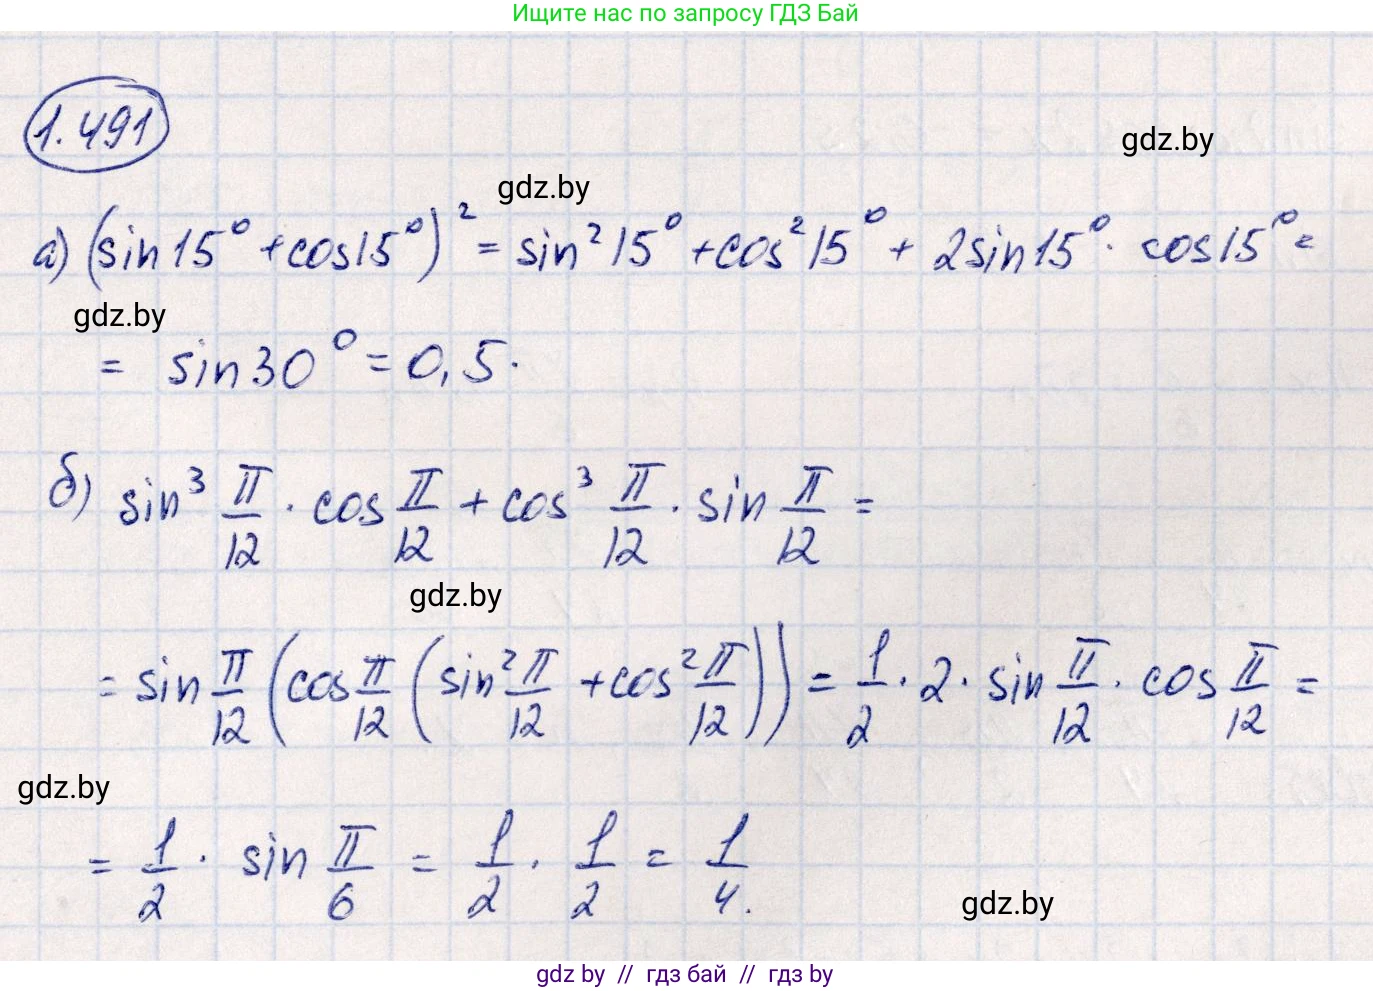 Ищите нас по запросу ГДЗ Бай
1.491
gdz.by
gdz.by
а) (sin15° + cos15°)² = sin²15° + cos²15° + 2sin15° · cos15° =
gdz.by
= sin30° = 0,5.
б) sin³ π/12 · cos π/12 + cos³ π/12 · sin π/12 =
gdz.by
= sin π/12 (cos π/12 (sin² π/12 + cos² π/12)) = 1/2 · 2 · sin π/12 · cos π/12 =
gdz.by
= 1/2 · sin π/6 = 1/2 · 1/2 = 1/4.
gdz.by
gdz by // гдз бай // гдз by